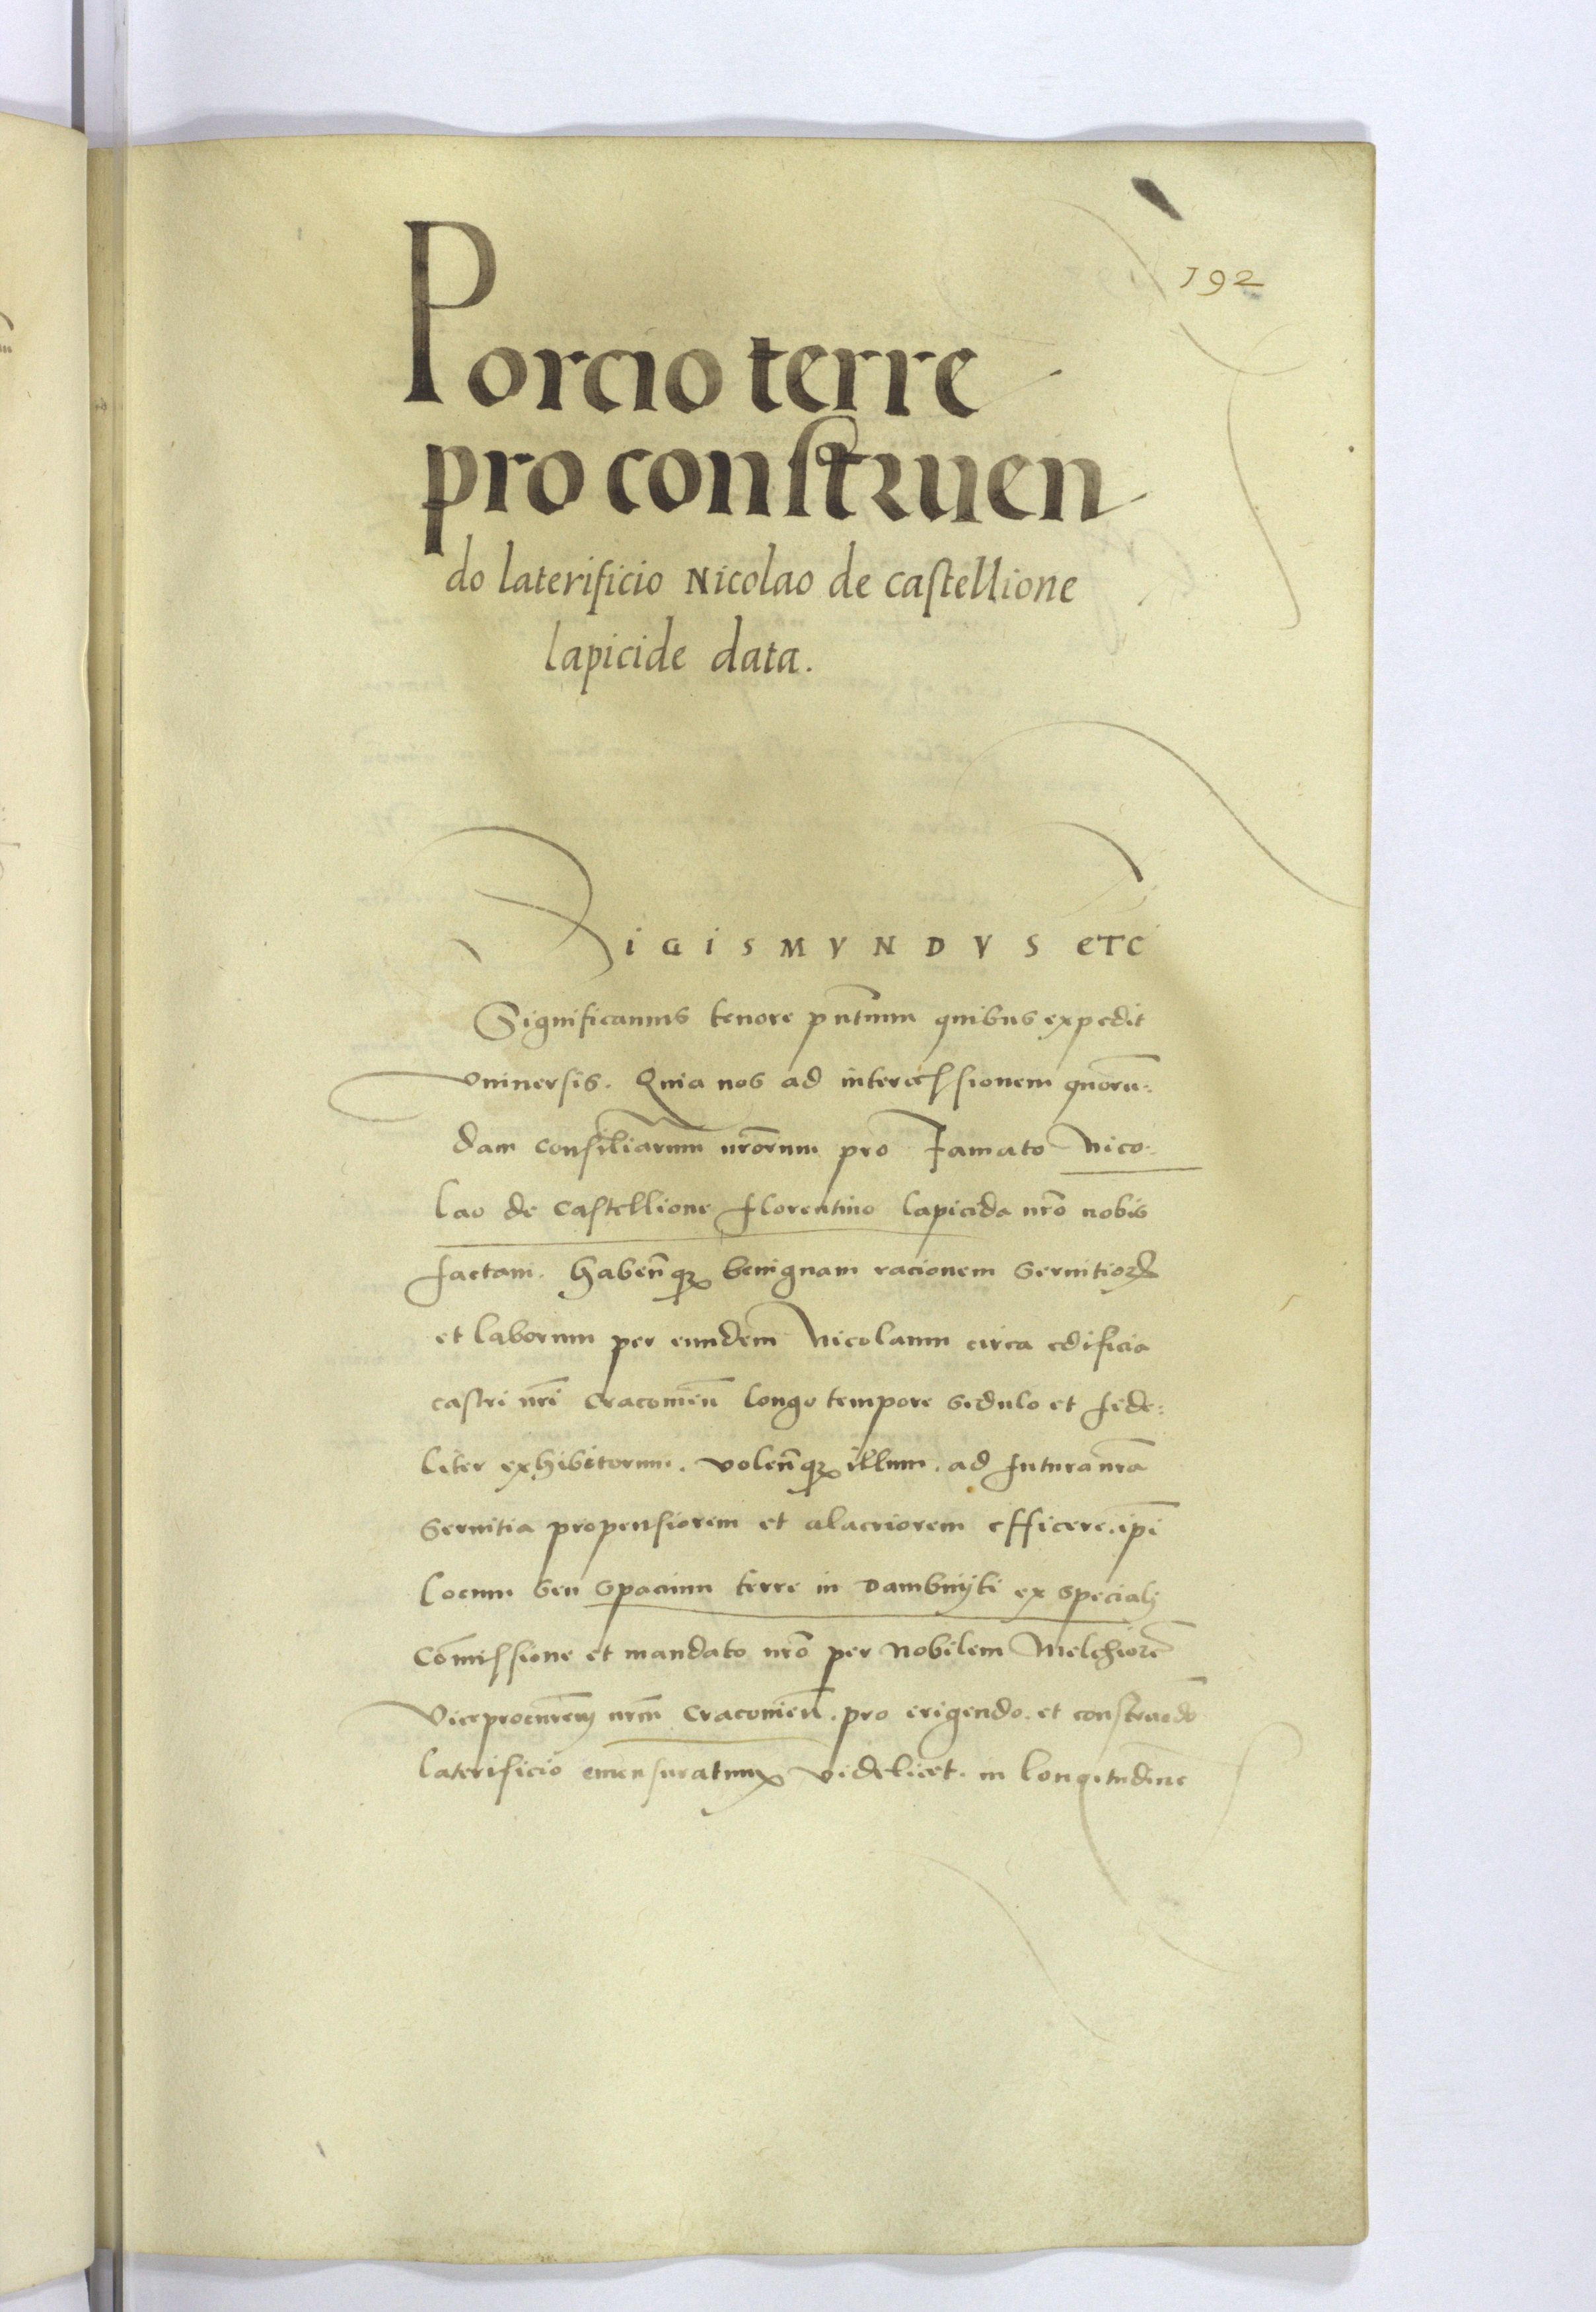 192
Porcio terre
pro construen
do laterificio Nicolao de castellione
lapicide data.
SIGISMVNDVS ETC
Significamus tenore pn̄tium quibus expedit
vniuersis. Quia nos ad intercessionem quoru:
dam consiliariorum nr̄orum pro Famato Nico-
lao de castellione florentino lapicida nr̄o nobis
factam. Habeñqꝫ benignam racionem seruitiorꝫ
et laborum per eundem Nicolaum circa edificia
castri nr̄i Cracouieñ longo tempore sedulo et fide:
liter exhibitorum. voleñqꝫ illum. ad futura nr̄a
seruitia propensiorem et alacriorem efficere. ip̄i
locum seu spacium terre in Dambnyki ex speciali
com̄issione et mandato nr̄o per Nobilem Melchiorē
viceprocur̄em nr̄m Cracouieñ. pro erigendo. et construēdo
laterificio emensuratum videlicet. in longitudine